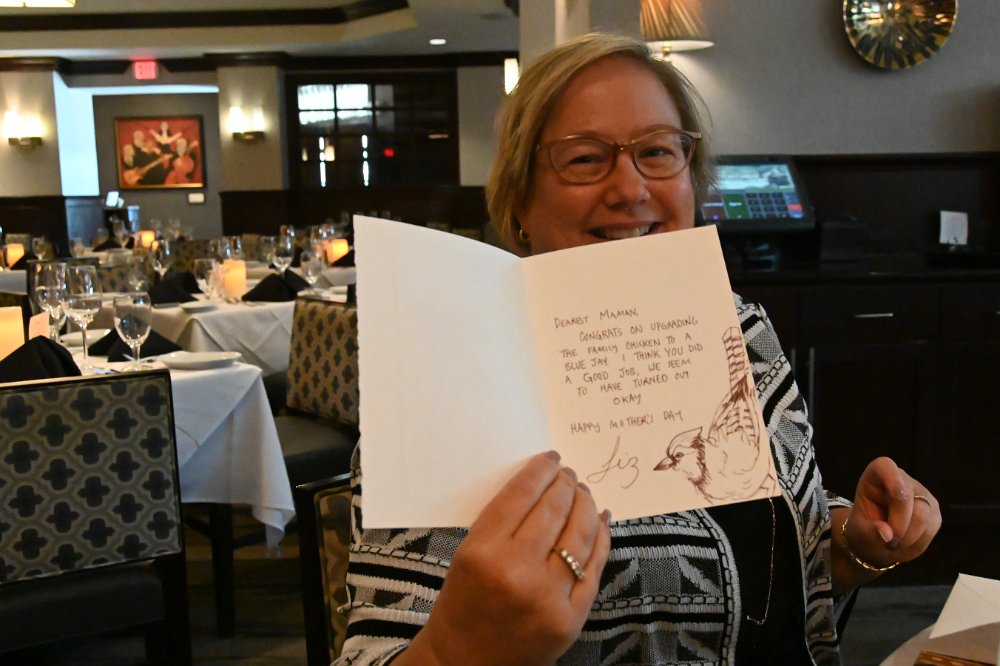 EXIT
DEAREST MAMAN,
CONGRATS ON UPGRADING
THE FAMILY CHICKEN TO A
BLUE JAY. I THINK YOU DID
A GOOD JOB, WE SEEM
TO HAVE TURNED OUT
OKAY
HAPPY MOTHER'S DAY
Liz